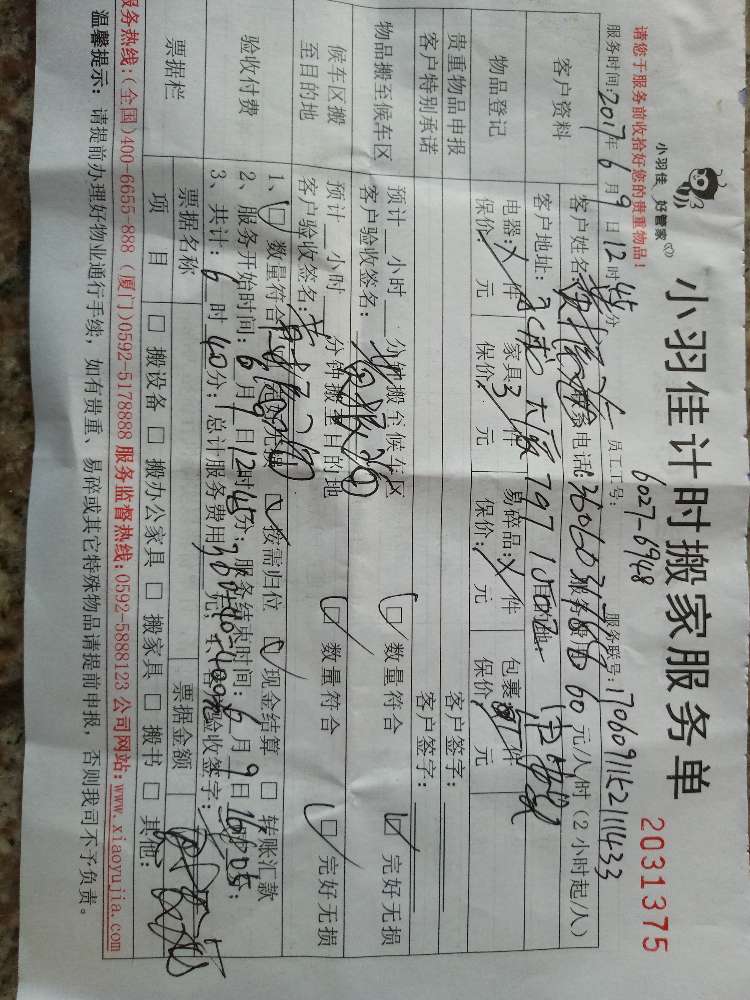 小羽佳 好管家
小羽佳计时搬家服务单
2031375
请您于服务前收拾好您的贵重物品！
6027-6948
服务时间：2017年6月9日12时45分 员工工号： 服务联号：
客户资料
客户姓名 联系电话： 服务费用60元/人/时（2小时起/人）
客户地址： 797
物品登记
电器： 件 家具3件 易碎品： 件 包裹 件
保价 元 保价： 元 保价： 元 保价 元
贵重物品申报 客户签字：
客户特别承诺 客户签字：
物品搬至候车区
预计__小时__分钟搬至候车区 数量符合 完好无损
客户验收签名：
候车区搬至目的地
预计__小时__分钟搬至目的地 数量符合 完好无损
客户验收签名：
验收付费
1、数量符合 完好无损 按需归位 现金结算 转账汇款
2、服务开始时间：6月9日12时45分；服务结束时间：6月9日
3、共计：6时40分；总计服务费用 元；客户验收签字：
票据栏
票据名称 票据金额
项目 搬设备 搬办公家具 搬家具 搬书 其他：
服务热线：(全国)400-6655-888（厦门)0592-5178888 服务监督热线：0592-5888123 公司网站：www.xiaoyujia.com
温馨提示：请提前办理好物业通行手续，如有贵重、易碎或其它特殊物品请提前申报，否则我司不予负责。